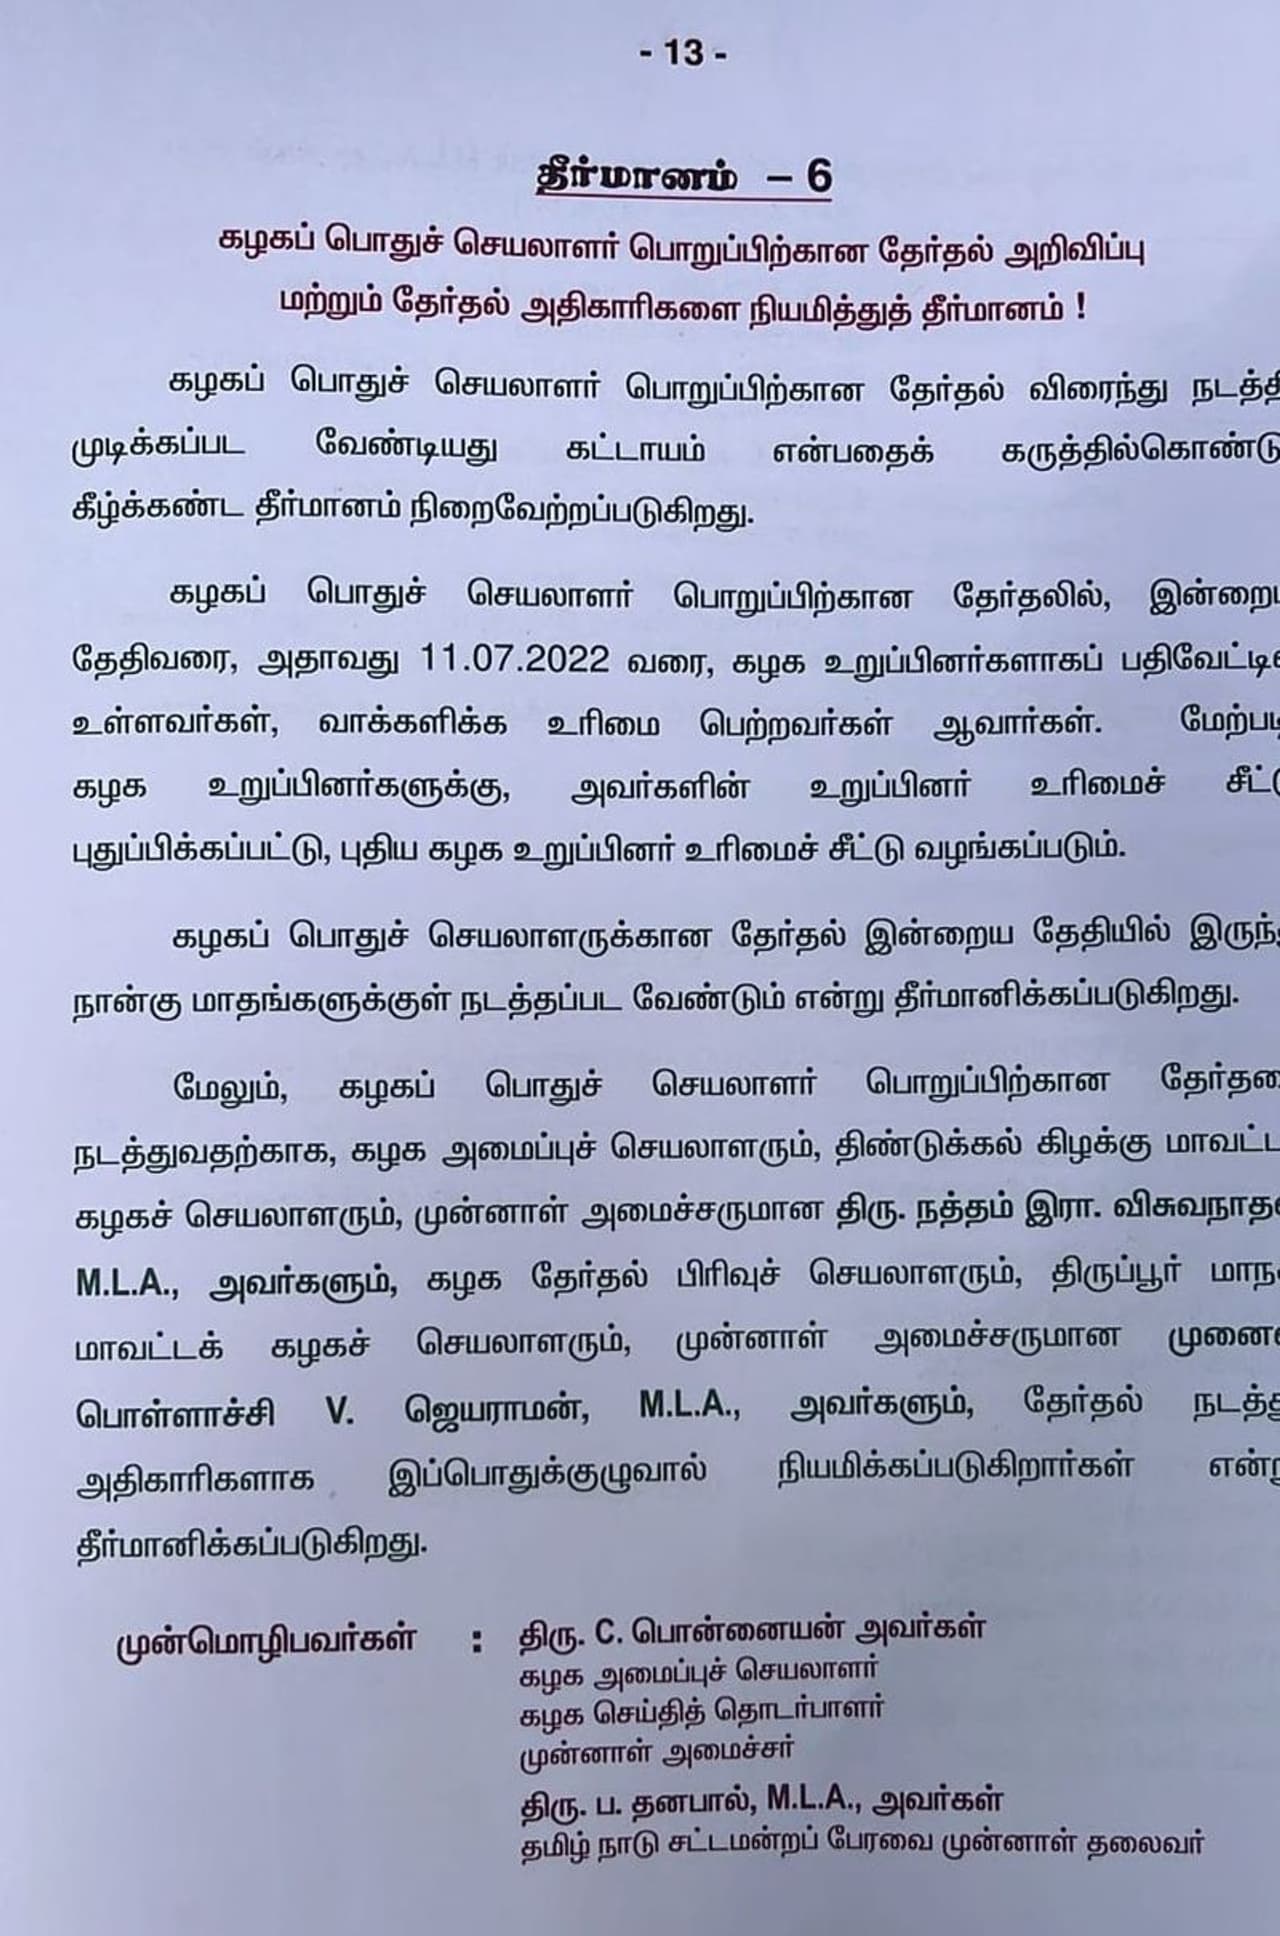 - 13 -
தீர்மானம் – 6
கழகப் பொதுச் செயலாளர் பொறுப்பிற்கான தேர்தல் அறிவிப்பு
மற்றும் தேர்தல் அதிகாரிகளை நியமித்துத் தீர்மானம் !
கழகப் பொதுச் செயலாளர் பொறுப்பிற்கான தேர்தல் விரைந்து
முடிக்கப்பட வேண்டியது கட்டாயம் என்பதைக் கருத்தில்கொண்டு
கீழ்க்கண்ட தீர்மானம் நிறைவேற்றப்படுகிறது.
கழகப் பொதுச் செயலாளர் பொறுப்பிற்கான தேர்தலில்,
தேதிவரை, அதாவது 11.07.2022 வரை, கழக உறுப்பினர்களாகப்
உள்ளவர்கள், வாக்களிக்க உரிமை பெற்றவர்கள் ஆவார்கள்.
கழக உறுப்பினர்களுக்கு, அவர்களின் உறுப்பினர் உரிமைச்
புதுப்பிக்கப்பட்டு, புதிய கழக உறுப்பினர் உரிமைச் சீட்டு வழங்கப்படும்.
கழகப் பொதுச் செயலாளருக்கான தேர்தல் இன்றைய தேதியில்
நான்கு மாதங்களுக்குள் நடத்தப்பட வேண்டும் என்று தீர்மானிக்கப்படுகிறது.
மேலும், கழகப் பொதுச் செயலாளர் பொறுப்பிற்கான
நடத்துவதற்காக, கழக அமைப்புச் செயலாளரும், திண்டுக்கல் கிழக்கு
கழகச் செயலாளரும், முன்னாள் அமைச்சருமான திரு. நத்தம் இரா.
M.L.A., அவர்களும், கழக தேர்தல் பிரிவுச் செயலாளரும், திருப்பூர்
மாவட்டக் கழகச் செயலாளரும், முன்னாள் அமைச்சருமான
பொள்ளாச்சி V. ஜெயராமன், M.L.A., அவர்களும், தேர்தல்
அதிகாரிகளாக இப்பொதுக்குழுவால் நியமிக்கப்படுகிறார்கள்
தீர்மானிக்கப்படுகிறது.
முன்மொழிபவர்கள் : திரு. C. பொன்னையன் அவர்கள்
கழக அமைப்புச் செயலாளர்
கழக செய்தித் தொடர்பாளர்
முன்னாள் அமைச்சர்
திரு. ப. தனபால், M.L.A., அவர்கள்
தமிழ் நாடு சட்டமன்றப் பேரவை முன்னாள் தலைவர்